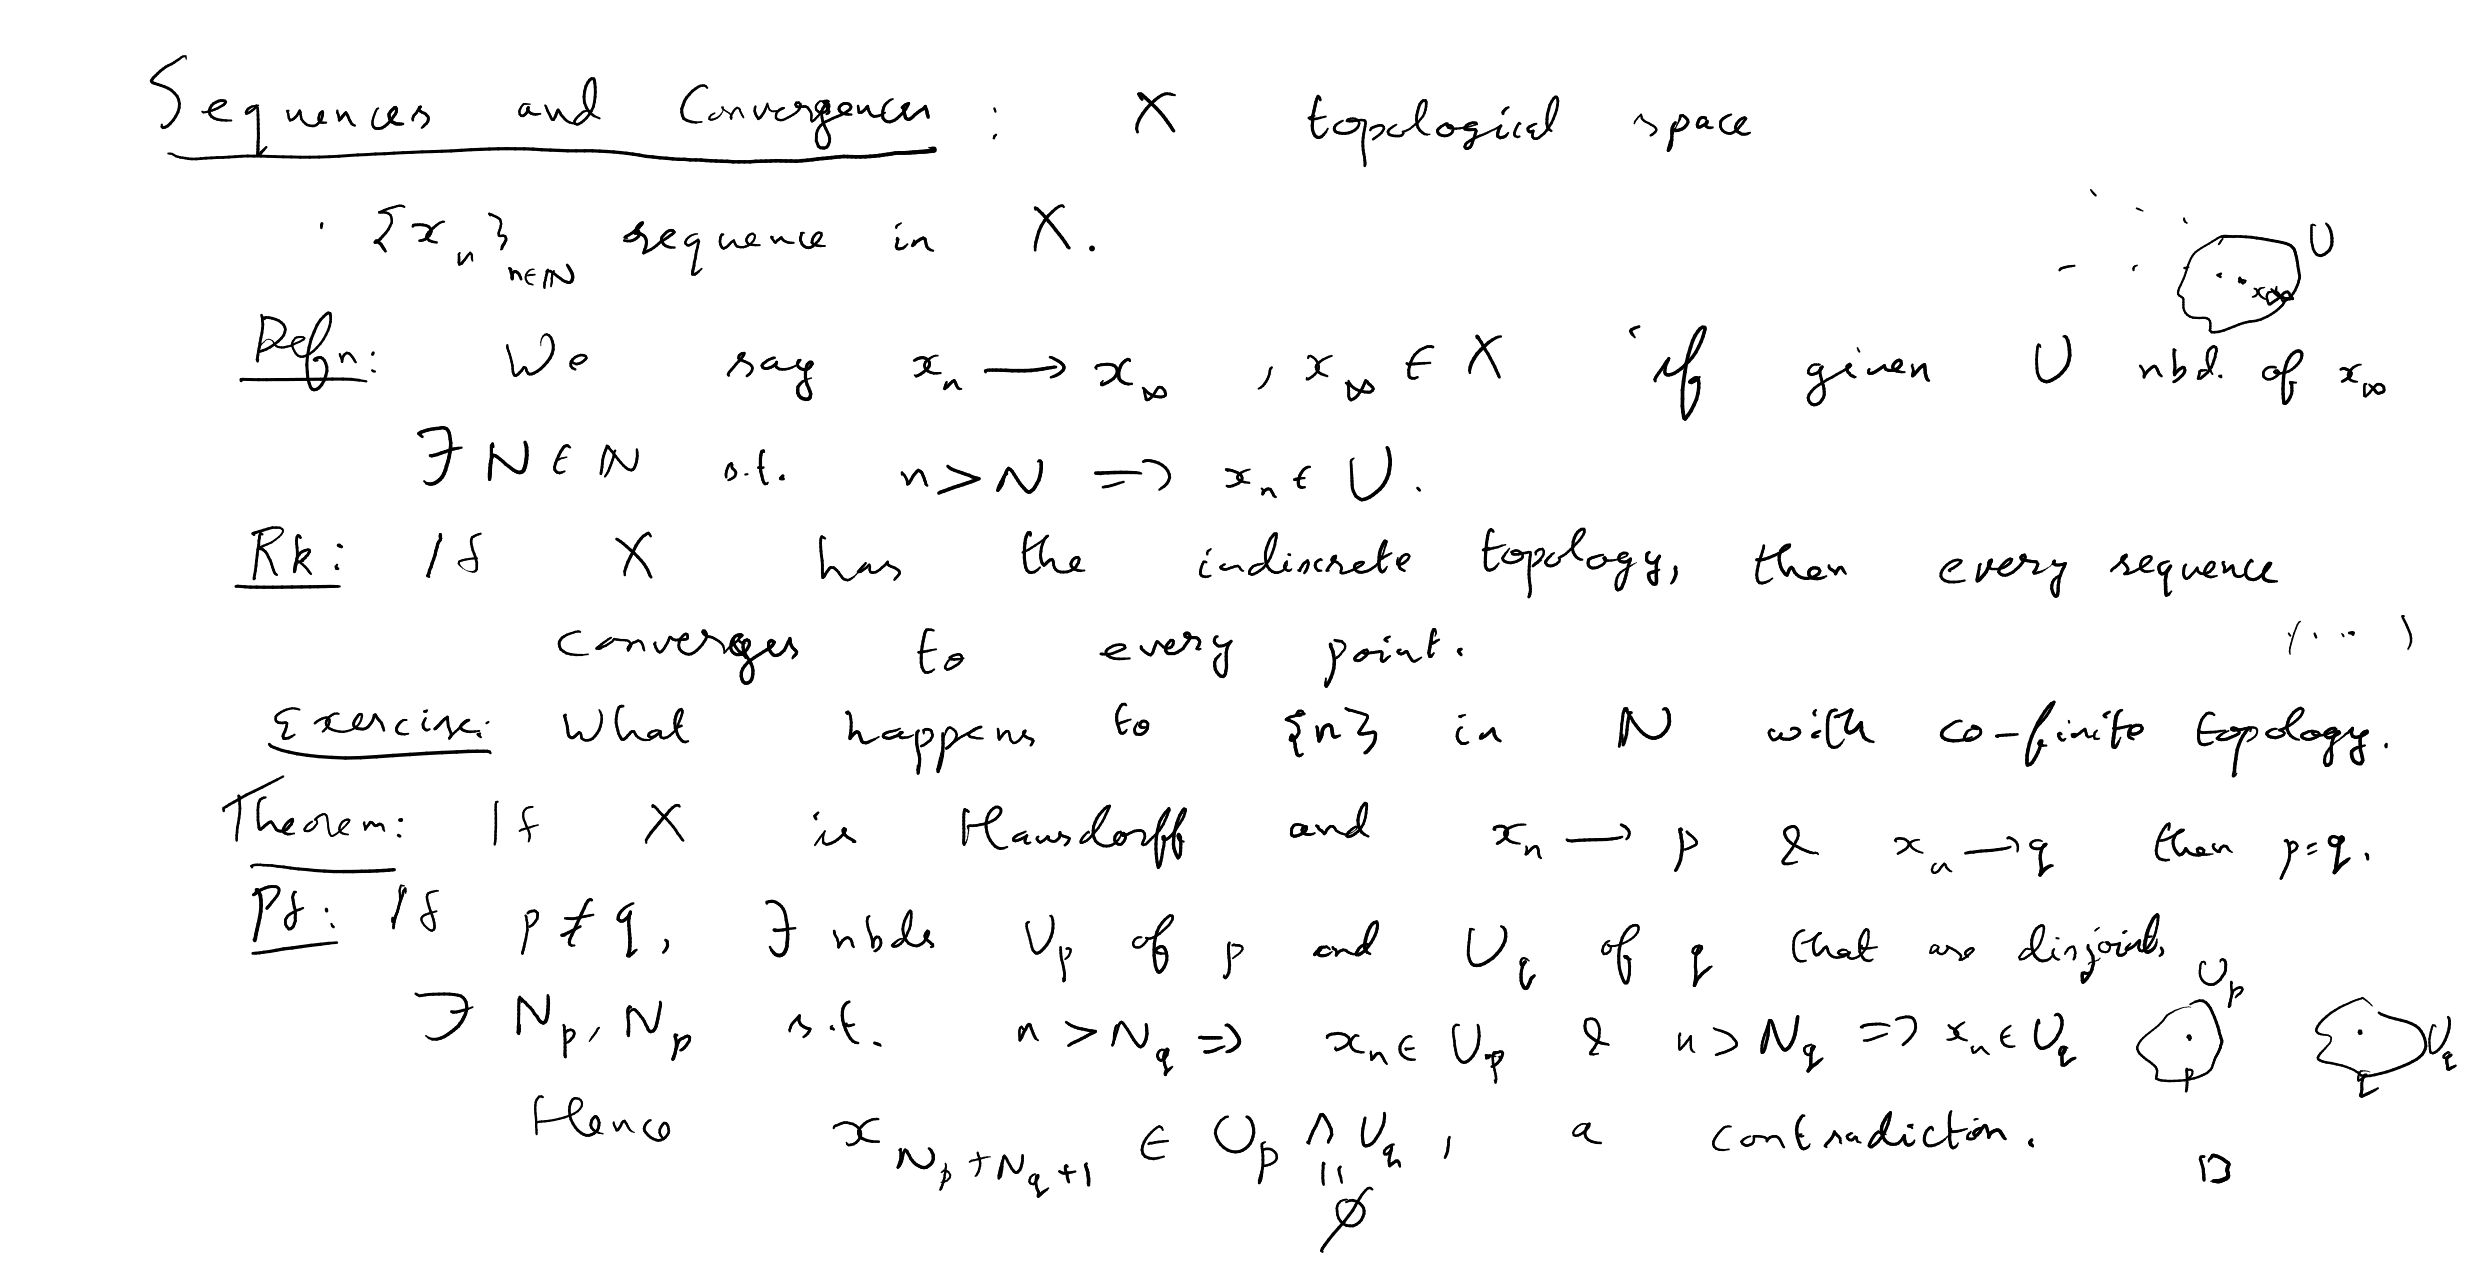 Sequences and Convergences : X topological space
· {xₙ}ₙ∈ℕ sequence in X.
U
x∞
Defn: We say xₙ → x∞ , x∞ ∈ X if given U nbd. of x∞
∃ N ∈ ℕ s.t. n > N => xₙ ∈ U.
Rk: If X has the indiscrete topology, then every sequence
converges to every point. (...)
Exercise: What happens to {n} in ℕ with co-finite topology.
Theorem: If X is Hausdorff and xₙ → p & xₙ → q then p=q.
Pf: If p ≠ q, ∃ nbds U_p of p and U_q of q that are disjoint,
∃ N_p, N_p s.t. n > N_q => xₙ ∈ U_p & n > N_q => xₙ ∈ U_q
U_p
p
U_q
q
Hence x_{N_p + N_q + 1} ∈ U_p ∩ U_q , a contradiction. □
=
∅